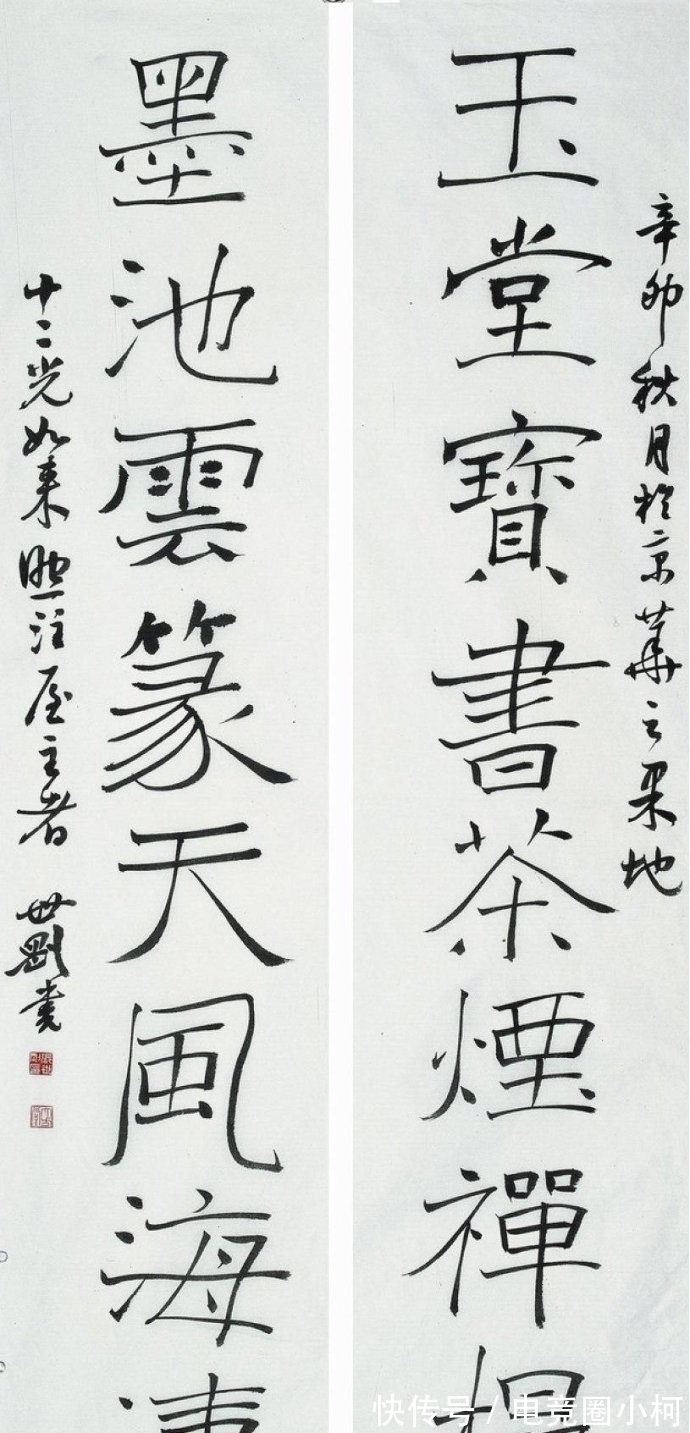 辛卯秋月於京華之果地
玉堂寶書茶煙禪榻
墨池雲篆天風海
十二光如來照注屋主者 世剛書
快传号 / 电竞圈小柯